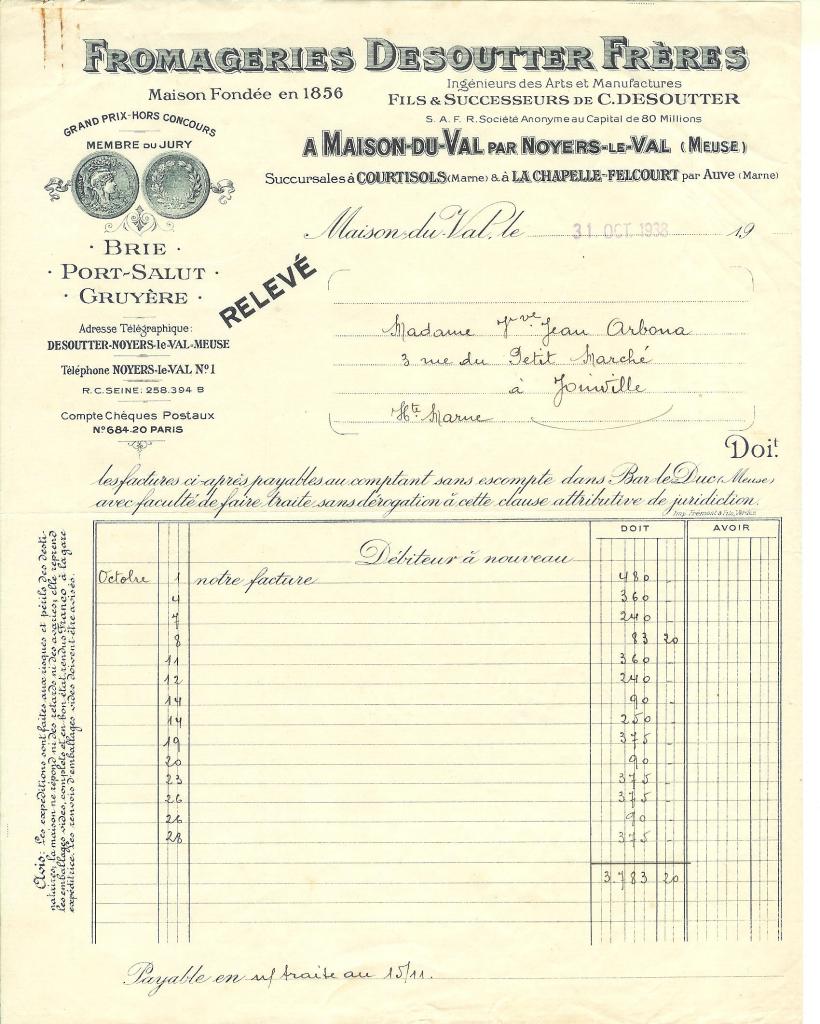 FROMAGERIES DESOUTTER FRÈRES
Maison Fondée en 1856
Ingénieurs des Arts et Manufactures
FILS & SUCCESSEURS DE C. DESOUTTER
S. A. F. R. Société Anonyme au Capital de 80 Millions
A MAISON-DU-VAL PAR NOYERS-LE-VAL (MEUSE)
Succursales à COURTISOLS (Marne) & à LA CHAPELLE-FELCOURT par Auve (Marne)
GRAND PRIX-HORS CONCOURS
MEMBRE DU JURY
· BRIE ·
· PORT-SALUT ·
· GRUYÈRE ·
Adresse Télégraphique:
DESOUTTER-NOYERS-le-VAL-MEUSE
Téléphone NOYERS-le-VAL N°1
R.C. SEINE: 258.394 B
Compte Chèques Postaux
N° 684-20 PARIS
Maison du Val, le 31 OCT. 1938 19
RELEVÉ
Madame Vve Jean Arbona
3 rue du Petit Marché
à Joinville
Hte Marne
Doit
les factures ci-après payables au comptant sans escompte dans Bar le Duc (Meuse)
avec faculté de faire traite sans dérogation à cette clause attributive de juridiction.
Imp. Frémont & Fils, Verdun
DOIT AVOIR
Débiteur à nouveau
Octobre 1 notre facture 480 -
4 360 -
7 240 -
8 83 20
11 360 -
12 240 -
14 90 -
14 250 -
19 375 -
20 90 -
23 375 -
26 375 -
26 90 -
28 375 -
3.783 20
Avis: Les expéditions sont faites aux risques et périls des desti-
nataires; la maison ne répond ni des retards ni des avaries; elle reprend
les emballages vides, complets et en bon état, rendus Franco à la gare
expéditrice. Les renvois d'emballages vides doivent être avisés.
Payable en n/ traite au 15/11.